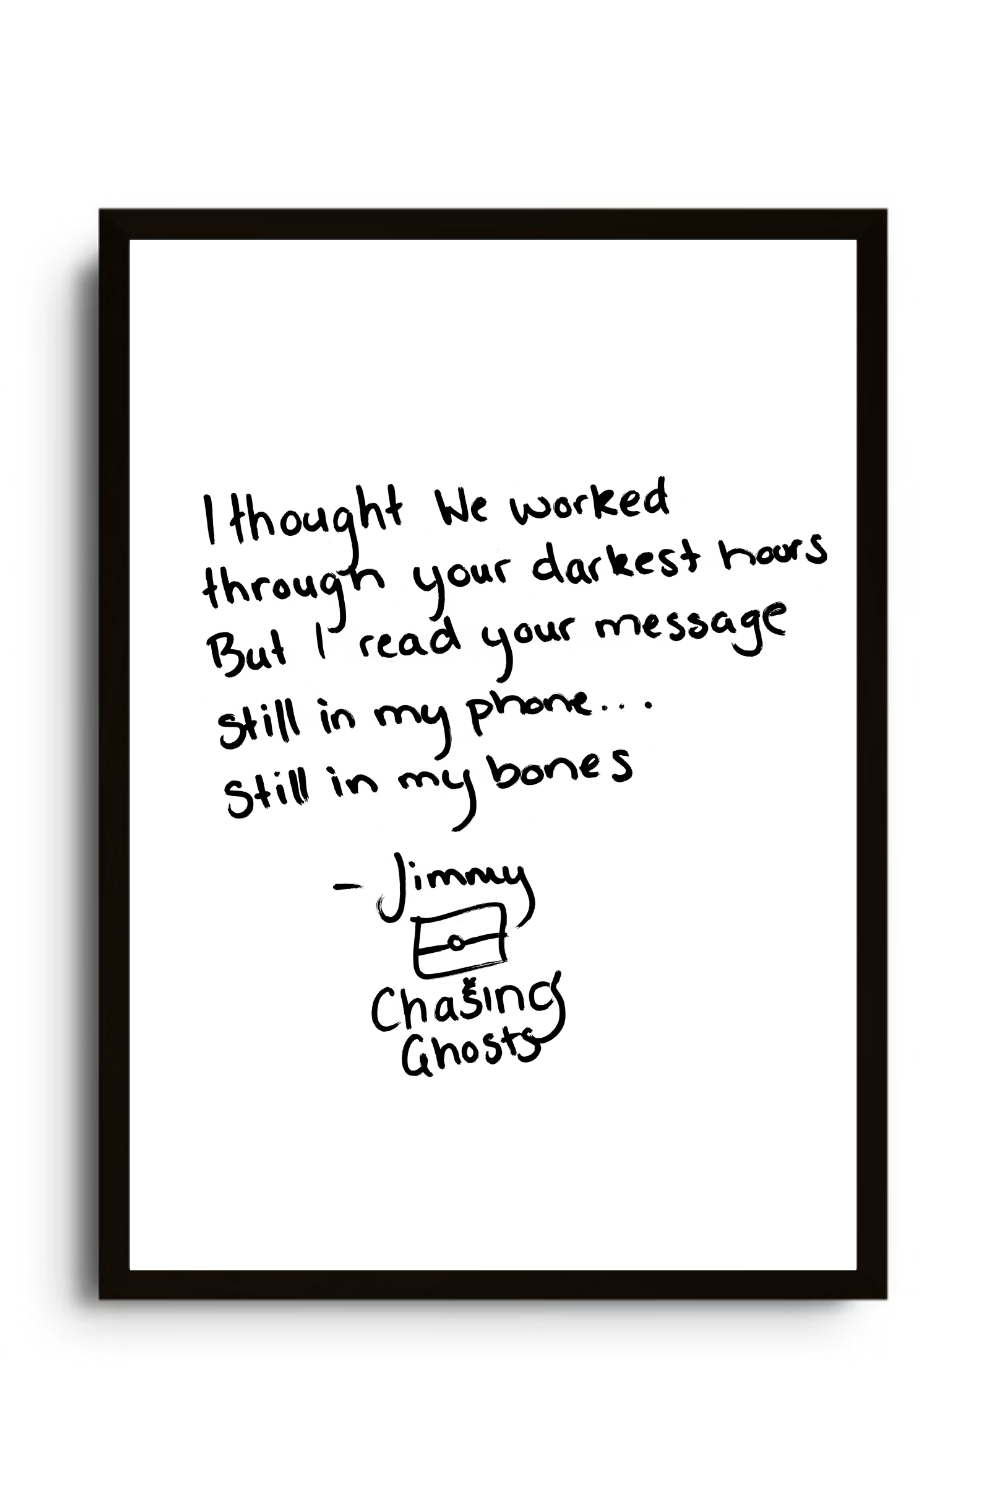 I thought We worked
through your darkest hours
But I read your message
still in my phone...
still in my bones
- Jimmy
Chasing
Ghosts